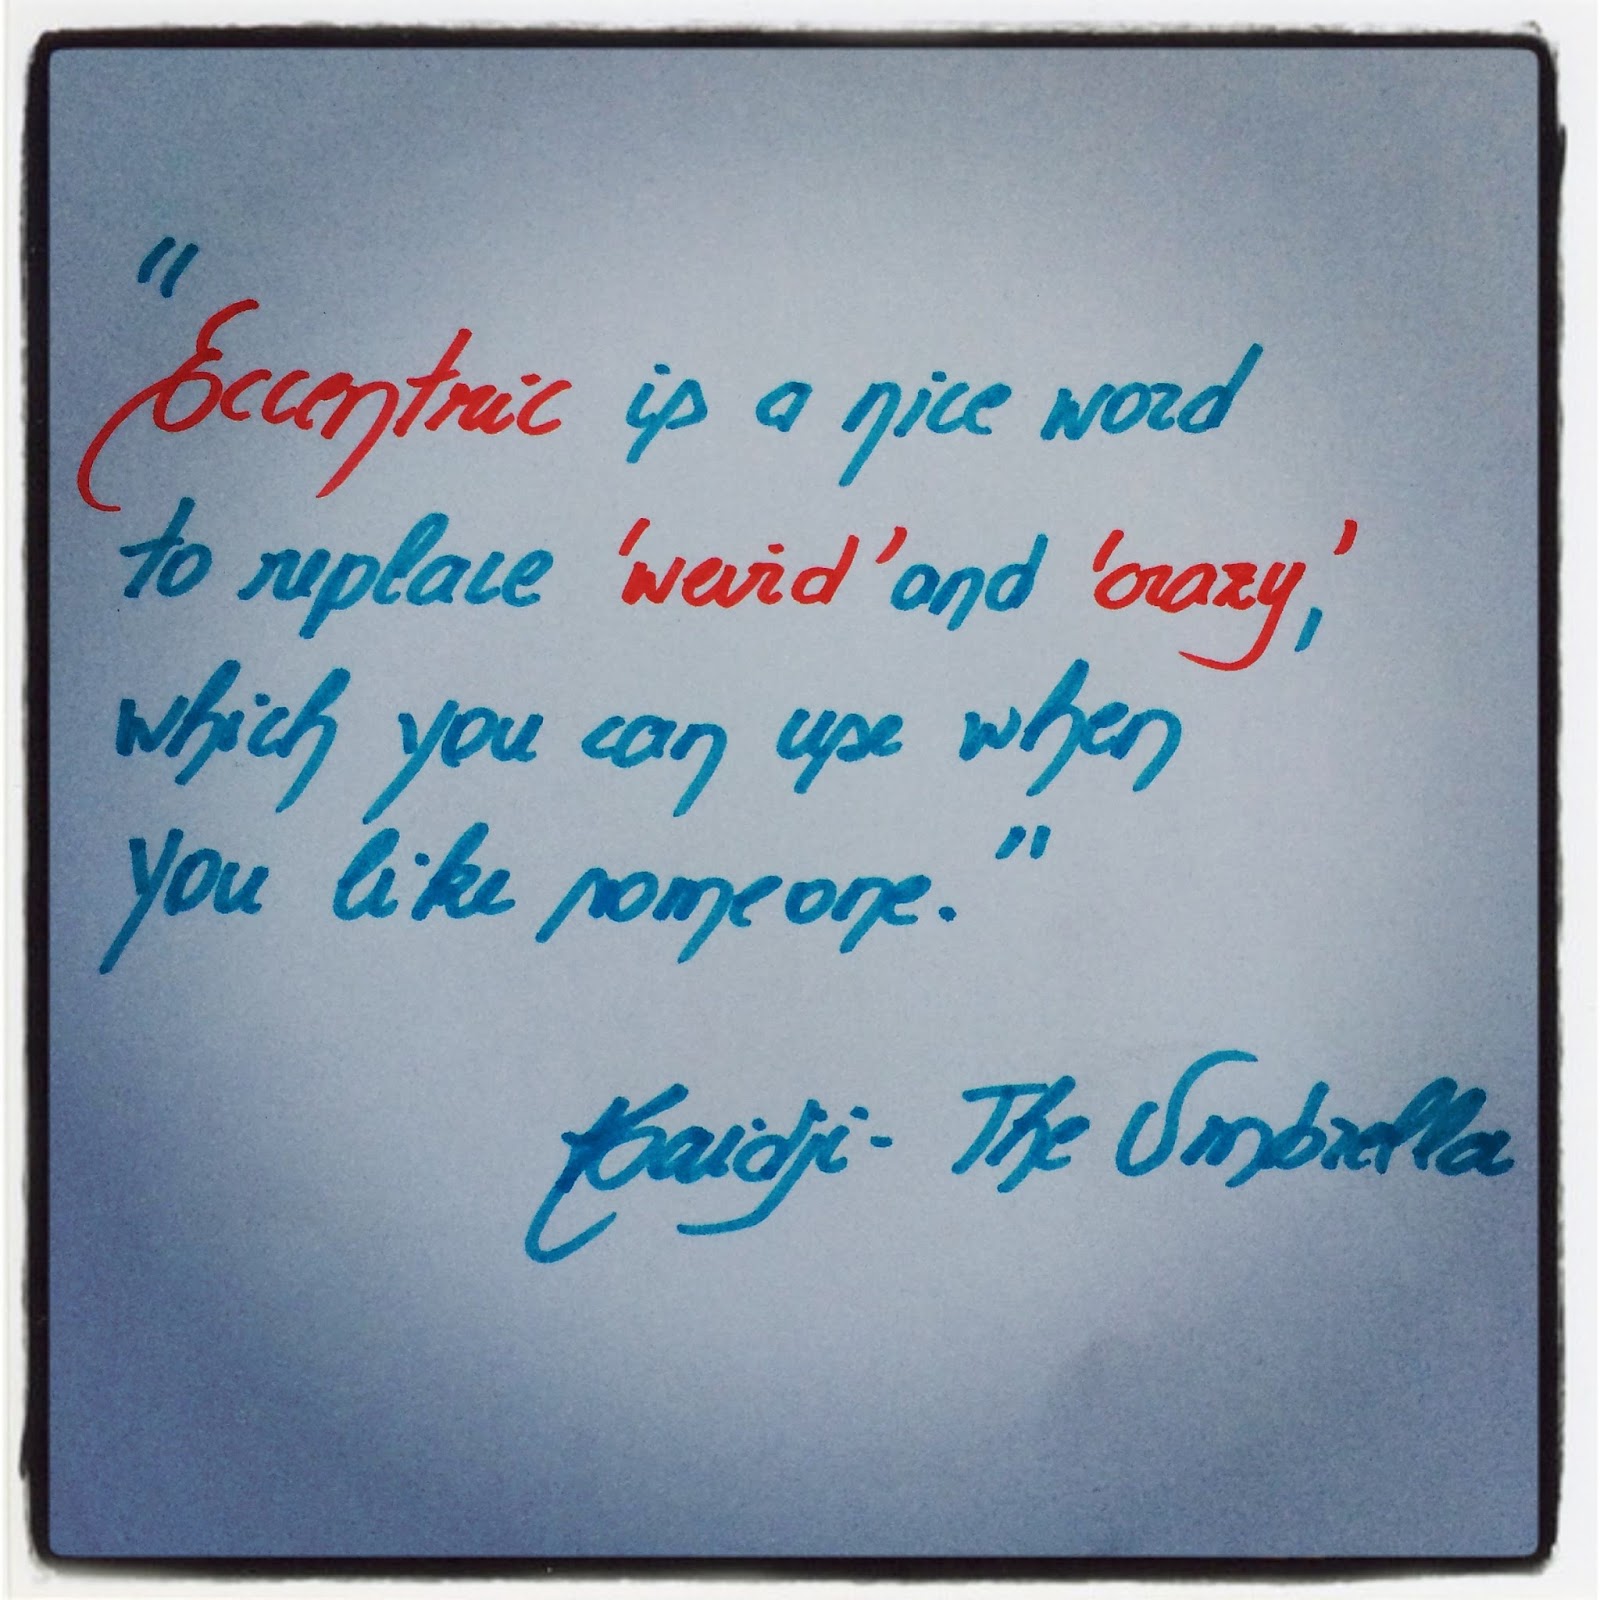 "Eccentric is a nice word
to replace 'weird' and 'crazy,'
which you can use when
you like someone."
Kaidji - The Umbrella